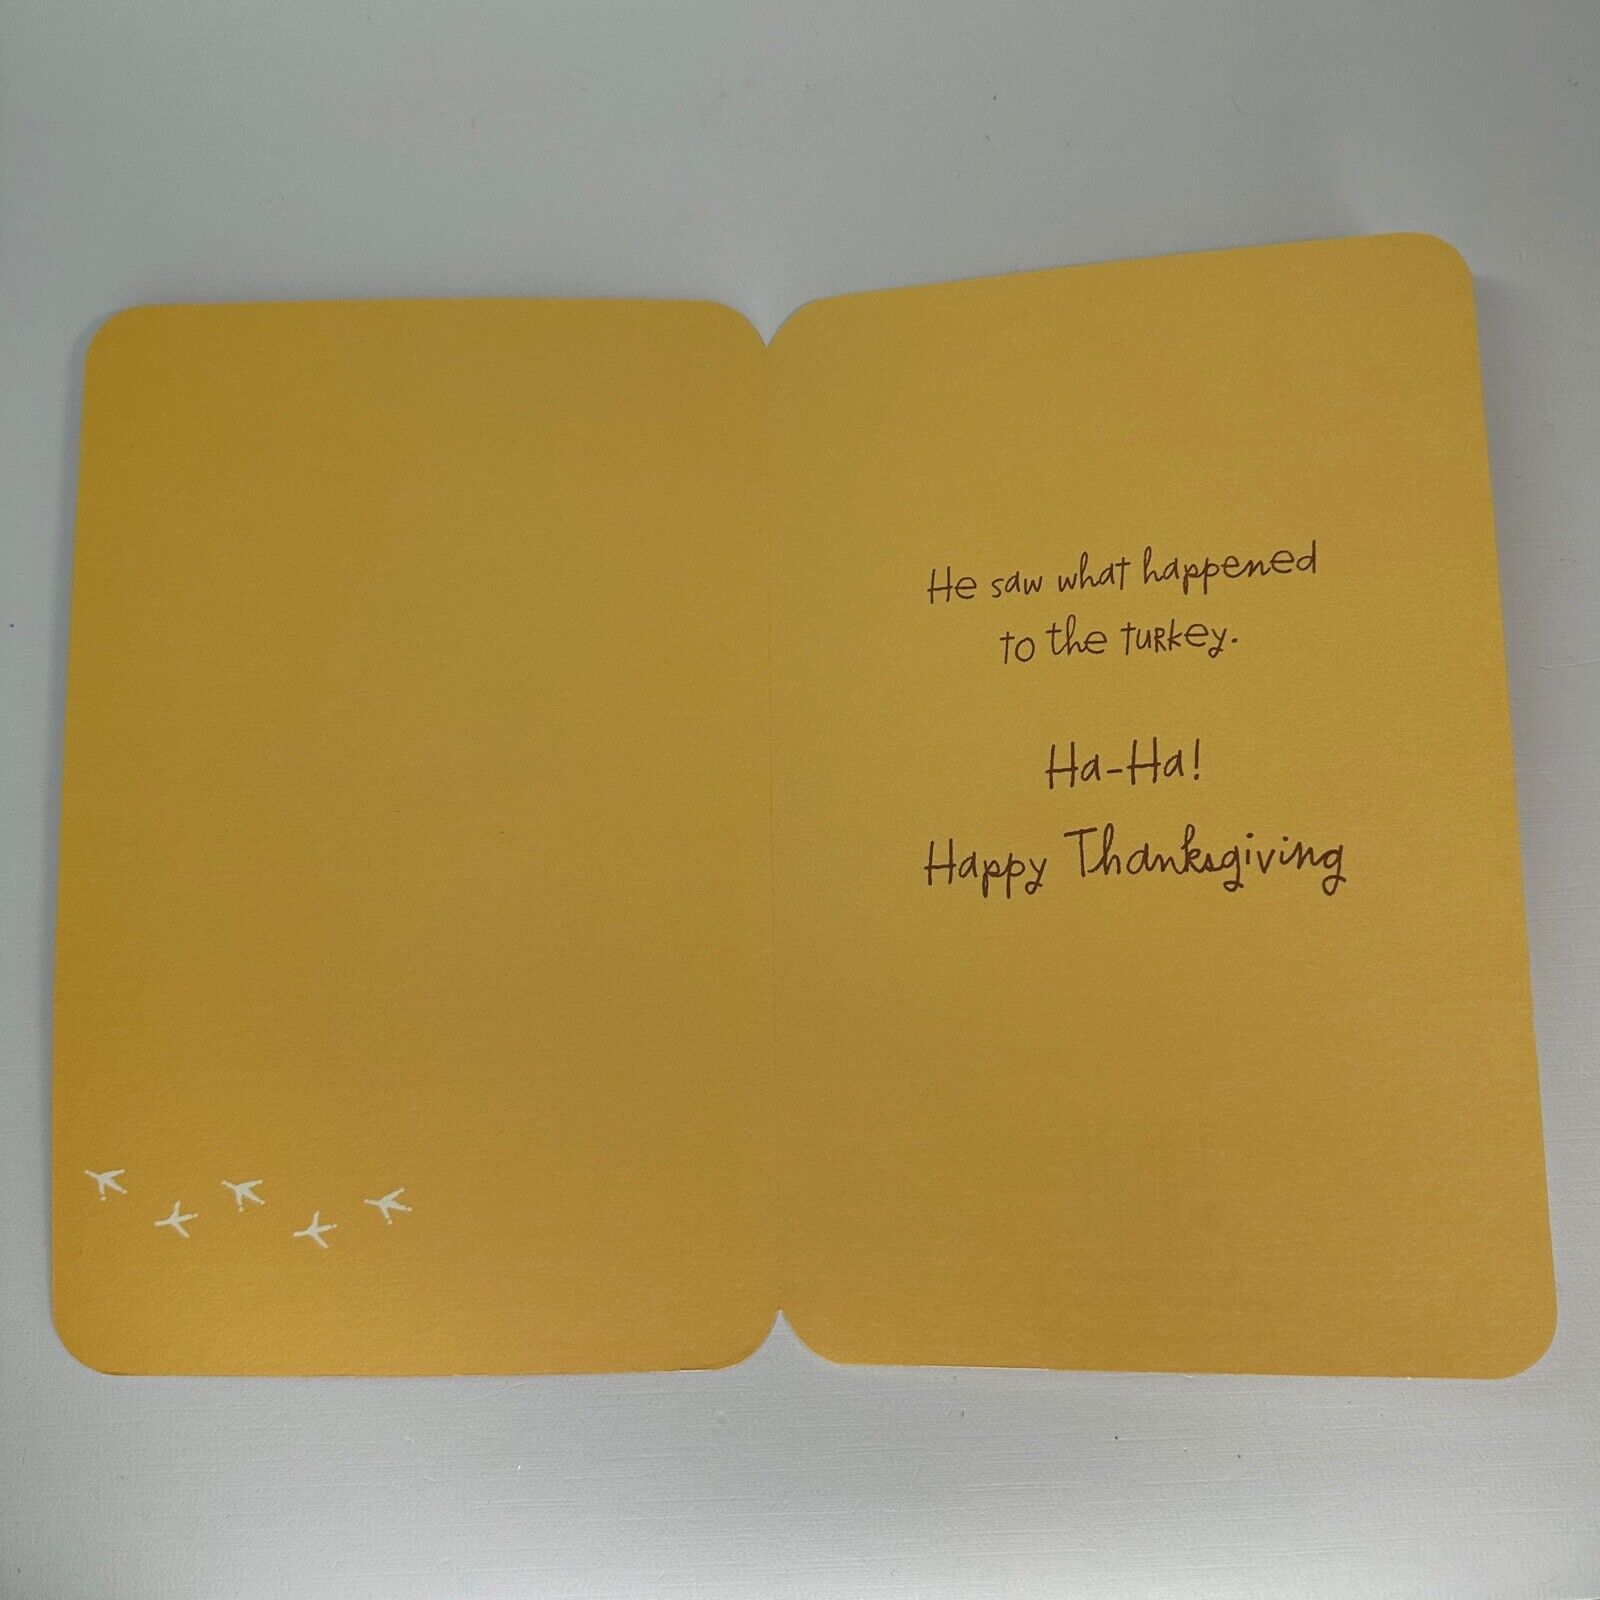 He saw what happened
to the turkey.
Ha-Ha!
Happy Thanksgiving